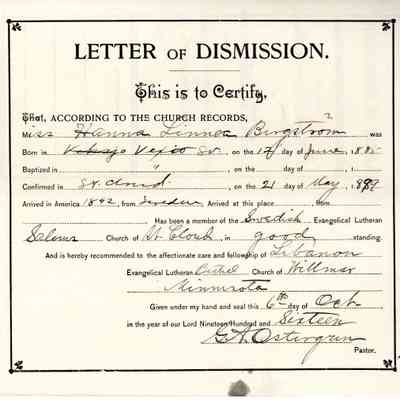 LETTER OF DISMISSION.
This is to Certify,
That, ACCORDING TO THE CHURCH RECORDS,
Miss Hanna Linnea Bergstrom was
Born in Sv. , on the 17 day of June , 188
Baptized in " , on the day of , 1
Confirmed in St. Cloud , on the 21 day of May , 1899
Arrived in America 1892 , from Sweden Arrived at this place , from
Has been a member of the Swedish Evangelical Lutheran
Salems Church of St. Cloud , in good standing.
And is hereby recommended to the affectionate care and fellowship of Lebanon
Evangelical Lutheran Church of Willmar
Minnesota
Given under my hand and seal this 6th day of Oct.
in the year of our Lord Nineteen Hundred and Sixteen
Pastor.